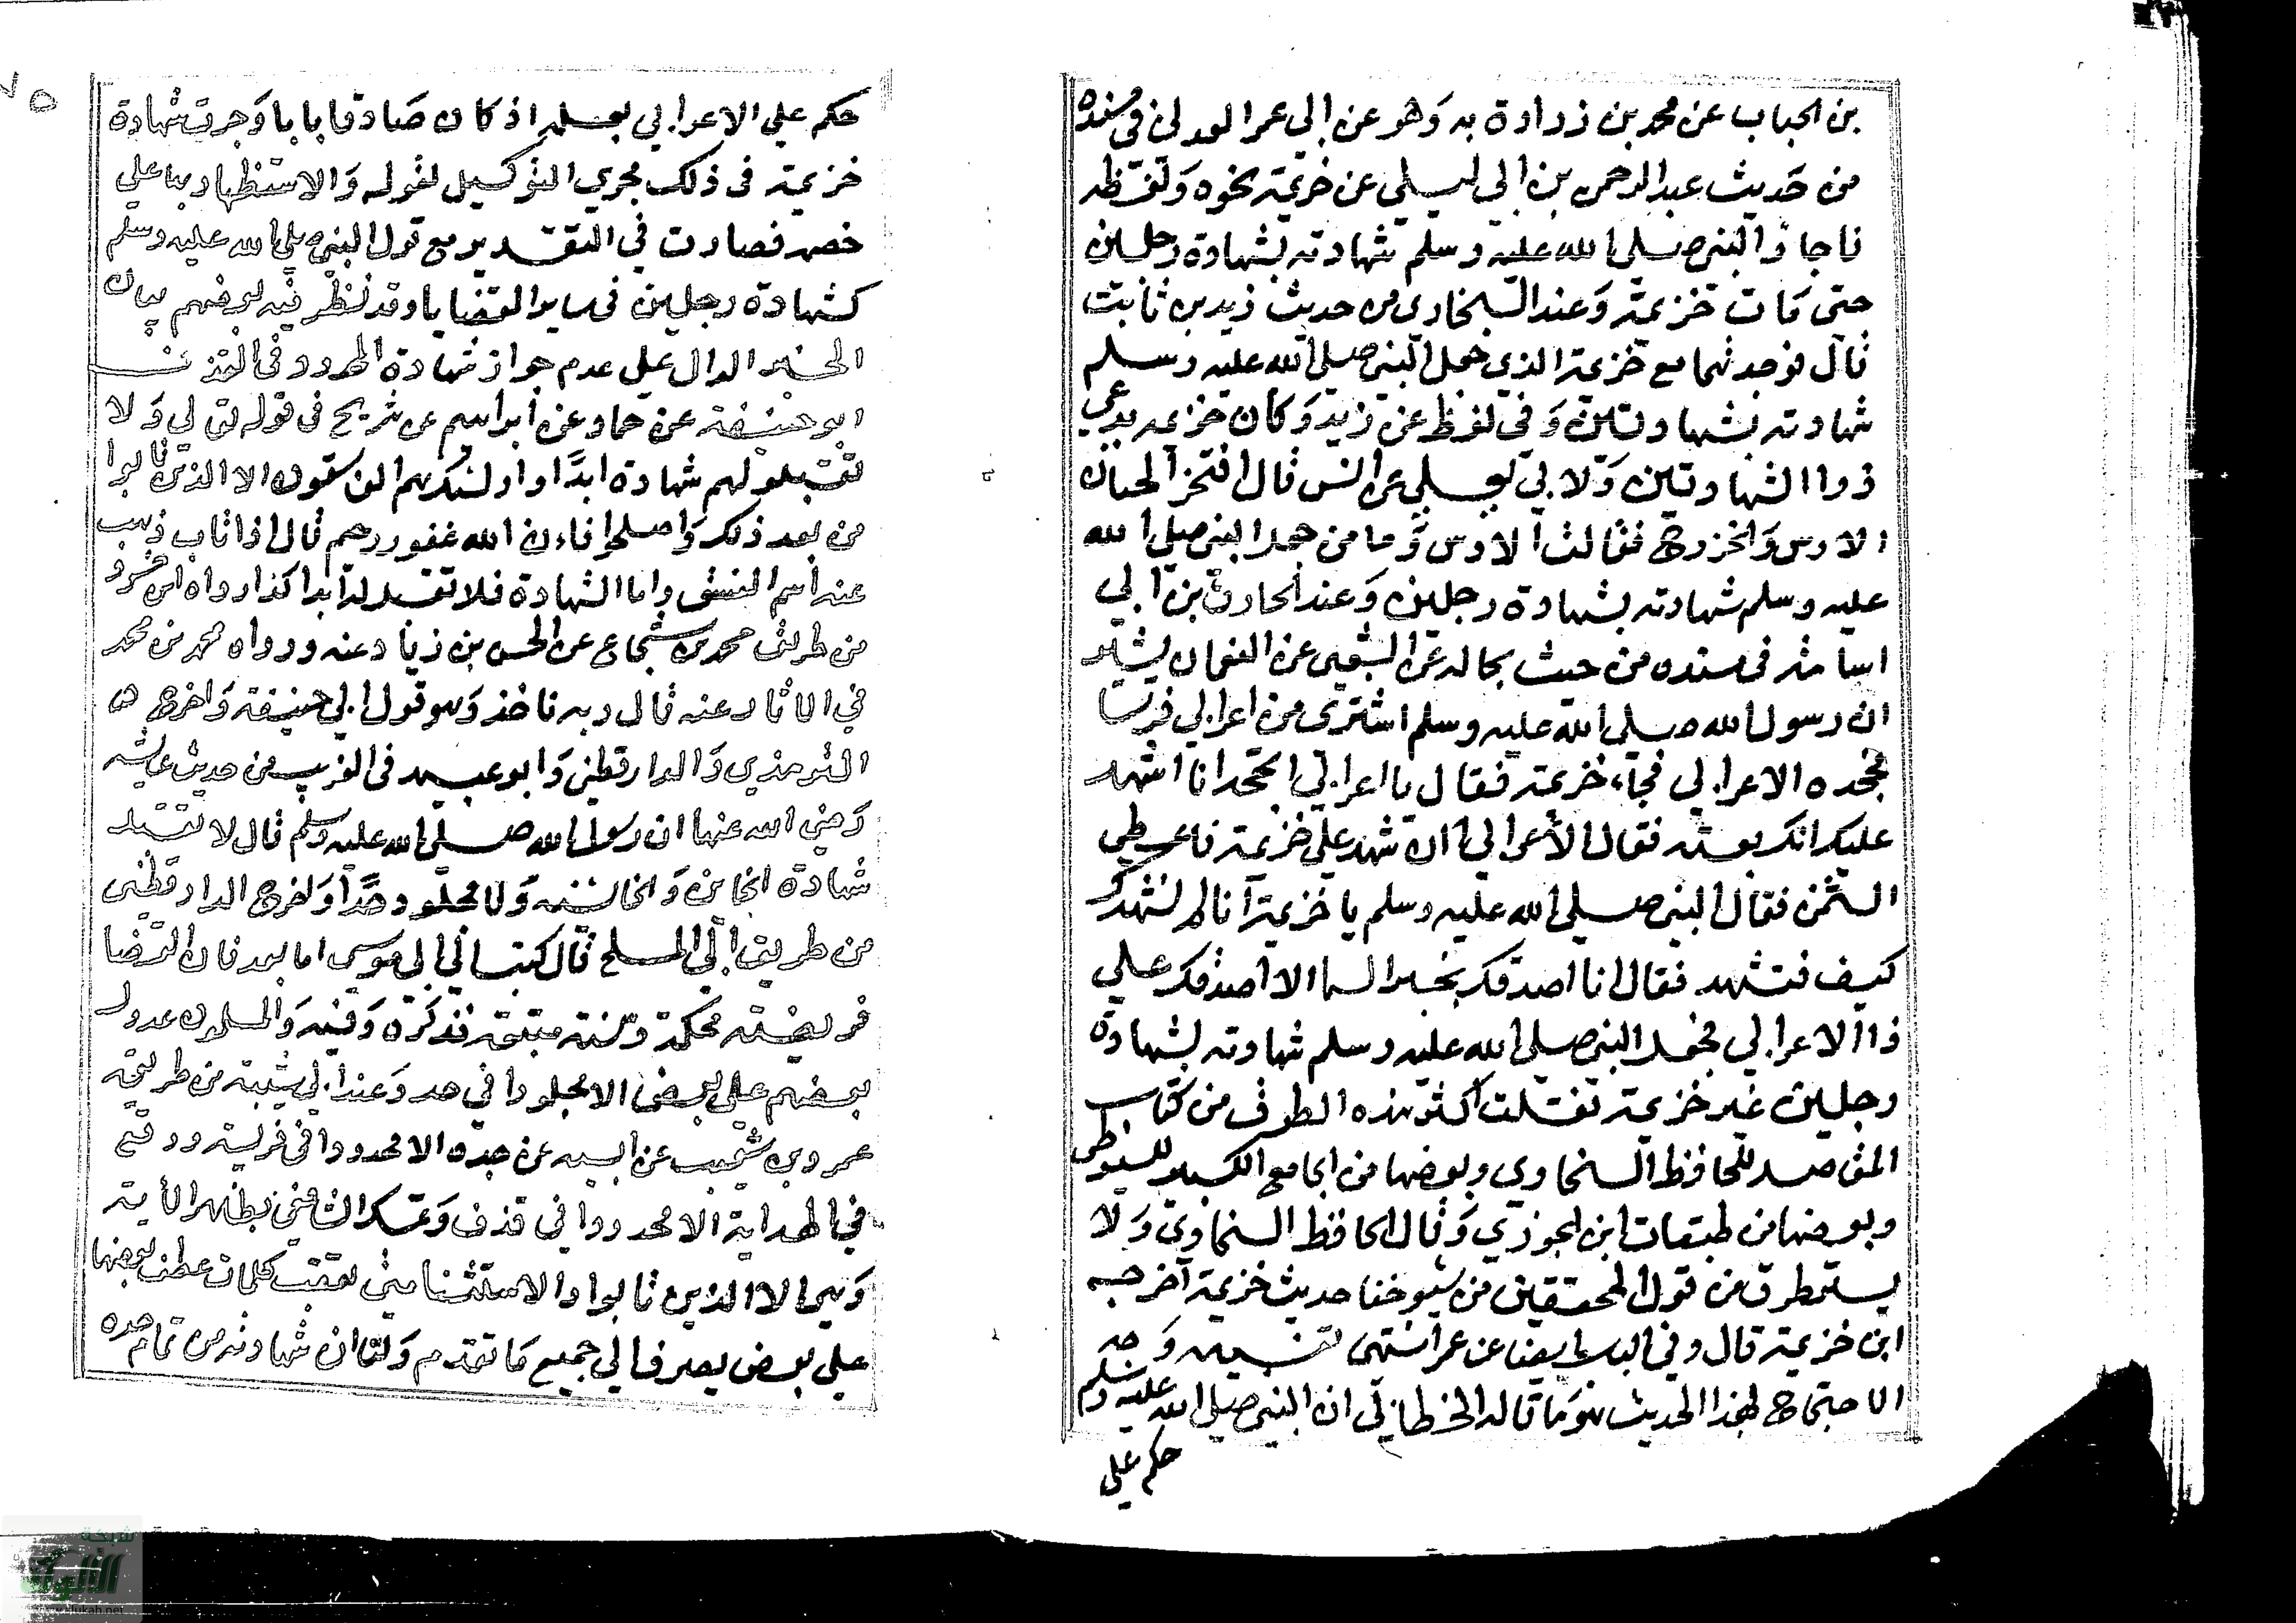 بن الحباب عن محمد بن زرارة به وهو عن ابي عمر العدني في مسنده
من حديث عبد الرحمن بن ابي ليلى عن خزيمة نحوه ولفظه
فاجاز النبي صلى الله عليه وسلم شهادته بشهادة رجلين
حتى مات خزيمة وعند البخاري من حديث زيد بن ثابت
قال فوجدتها مع خزيمة الذي جعل النبي صلى الله عليه وسلم
شهادته بشهادتين وفي لفظ عن زيد وكان خزيمة يدعى
ذوا الشهادتين ولابي يعلى عن انس قال افتخر الحيان
الاوس والخزرج فقالت الاوس ومنا من جعل النبي صلى الله
عليه وسلم شهادته بشهادة رجلين وعند الحارث بن ابي
اسامة في مسنده من حديث مجالد عن الشعبي عن النعمان بشير
ان رسول الله صلى الله عليه وسلم اشترى من اعرابي فرسا
فجحده الاعرابي فجاء خزيمة فقال يا اعرابي اتجحد انا اشهد
عليك انك بعته فقال الأعرابي ان شهد علي خزيمة فاعطني
الثمن فقال النبي صلى الله عليه وسلم يا خزيمة انا لم نشهدك
كيف تشهد فقال انا اصدقك بخبر السما الا اصدقك على
ذا الاعرابي فجعل النبي صلى الله عليه وسلم شهادته بشهادة
رجلين غير خزيمة نقلت اكثر هذه الطرق من كتاب
المقاصد للحافظ السخاوي وبعضها من الجامع الكبير للسيوطي
وبعضها من طبقات ابن الجوزي وقال الحافظ السخاوي ولا
يستطرق من قول المحققين من شيوخنا حديث خزيمة اخرجه
ابن خزيمة قال وفي الباب ايضا عن عمر انتهى وجه
الاحتجاج لهذا الحديث هو ما قاله الخطابي ان النبي صلى الله عليه وسلم
حكم على
٧٥
حكم على الاعرابي بعلمه اذ كان صادقا بارا وجرت شهادة
خزيمة في ذلك مجرى التوكيل لقوله والاستظهار بها على
خصمه فصارت في التقدير مع قول النبي صلى الله عليه وسلم
كشهادة رجلين في ساير القضايا وقد نظر فيه بعضهم بيان
الخبر الدال على عدم جواز شهادة المحدود في القذف
ابو حنيفة عن حماد عن ابراهيم عن شريح في قوله تعالى ولا
تقبلوا لهم شهادة ابدا واولئك هم الفاسقون الا الذين تابوا
من بعد ذلك واصلحوا فان الله غفور رحيم قال اذا تاب ذهب
عنه اسم الفسق واما الشهادة فلا تقبل له ابدا كذا رواه ابن خسرو
من طريق محمد بن شجاع عن الحسن بن زياد عنه ورواه محمد بن محمد
في الاثار عنه قال وبه ناخذ وهو قول ابي حنيفة واخرج
الترمذي والدارقطني وابو عبيد في الغريب من حديث عايشة
رضي الله عنها ان رسول الله صلى الله عليه وسلم قال لا تقبل
شهادة الخاين والخاينة ولا مجلود حدا واخرج الدارقطني
من طريق ابي المليح قال كتب الى ابي موسى اما بعد فان القضا
فريضة محكمة وسنة متبعة فذكره وفيه والمسلمون عدول
بعضهم على بعض الا مجلودا في حد وعند ابي شيبة من طريق
عمرو بن شعيب عن ابيه عن جده الا محدودا في فرية ووقع
في الهداية الا محدودا في قذف وتمسك الشافعي بظاهر الأية
وهي الا الذين تابوا والاستثنا متى تعقب كلمات عطف بعضها
على بعض يصرف الى جميع ما تقدم ولنا ان شهادته من تمام حده
شبكة
الألوكة